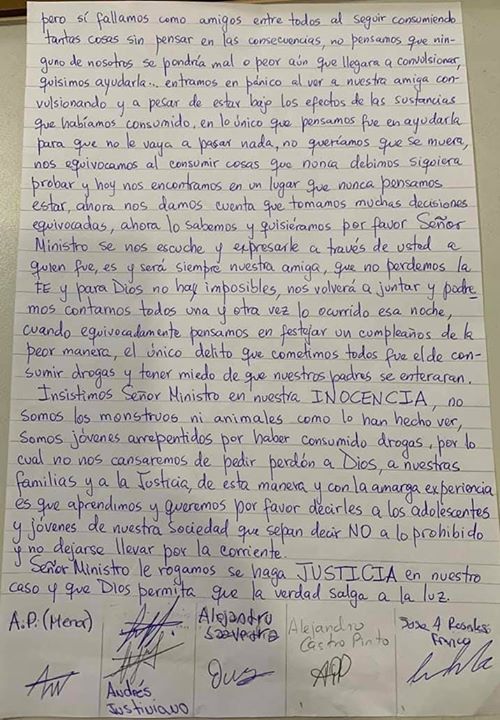 pero sí fallamos como amigos entre todos al seguir consumiendo
tantas cosas sin pensar en las consecuencias, no pensamos que nin-
guno de nosotros se pondría mal o peor aún que llegara a convulsionar,
quisimos ayudarla... entramos en pánico al ver a nuestra amiga con-
vulsionando y a pesar de estar bajo los efectos de las sustancias
que habíamos consumido, en lo único que pensamos fue en ayudarla
para que no le vaya a pasar nada, no queríamos que se muera,
nos equivocamos al consumir cosas que nunca debimos siquiera
probar y hoy nos encontramos en un lugar que nunca pensamos
estar, ahora nos damos cuenta que tomamos muchas decisiones
equivocadas, ahora lo sabemos y quisiéramos por favor Señor
Ministro se nos escuche y expresarle a través de usted a
quien fue, es y será siempre nuestra amiga, que no perdemos la
FE y para Dios no hay imposibles, nos volverá a juntar y podre
mos contarnos todos una y otra vez lo ocurrido esa noche,
cuando equivocadamente pensamos en festejar un cumpleaños de la
peor manera, el único delito que cometimos todos fue el de con-
sumir drogas y tener miedo de que nuestros padres se enteraran.
Insistimos Señor Ministro en nuestra INOCENCIA, no
somos los monstruos ni animales como lo han hecho ver,
somos jóvenes arrepentidos por haber consumido drogas, por lo
cual no nos cansaremos de pedir perdón a Dios, a nuestras
familias y a la Justicia, de esta manera y con la amarga experiencia
es que aprendimos y queremos por favor decirles a los adolescentes
y jóvenes de nuestra sociedad que sepan decir NO a lo prohibido
y no dejarse llevar por la corriente.
Señor Ministro le rogamos se haga JUSTICIA en nuestro
caso y que Dios permita que la verdad salga a la luz.
A.P. (Mena)
Andrés
Justiniano
Alejandro
Saavedra
Alejandro
Castro Pinto
Jose A Rosales
Franco